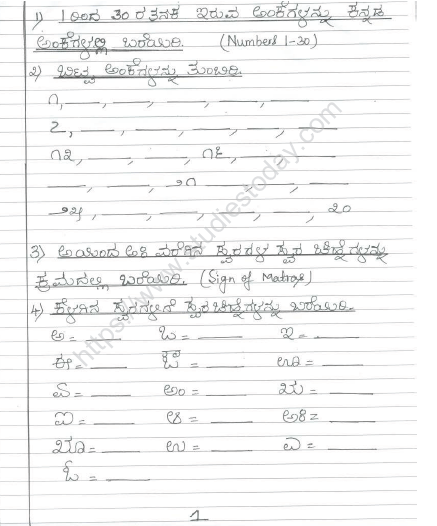 1) 1 ರಿಂದ 30 ರ ತನಕ ಇರುವ ಅಂಕೆಗಳನ್ನು ಕನ್ನಡ
ಅಂಕೆಗಳಲ್ಲಿ ಬರೆಯಿರಿ. (Numbers 1-30)
2) ಬಿಟ್ಟ ಅಂಕೆಗಳನ್ನು ತುಂಬಿರಿ.
೧, __, __, __, __, __, __
೭, __, __, __, __, __, __
೧೩, __, __, ೧೬, __, __
__, __, ೨೧, __, __, __
೨೫, __, __, __, __, ೩೦
3) ಅ ಯಿಂದ ಅಃ ವರೆಗಿನ ಸ್ವರಗಳ ಸ್ವರ ಚಿಹ್ನೆಗಳನ್ನು
ಕ್ರಮದಲ್ಲಿ ಬರೆಯಿರಿ. (Sign of Matras)
4) ಕೆಳಗಿನ ಸ್ವರಗಳಿಗೆ ಸ್ವರ ಚಿಹ್ನೆಗಳನ್ನು ಬರೆಯಿರಿ.
ಅ = ___ ಒ = ___ ಇ = ___
ಈ = ___ ಔ = ___ ಊ = ___
ಏ = ___ ಅಂ = ___ ಋ = ___
ಐ = ___ ಆ = ___ ಅಃ = ___
ೠ = ___ ಉ = ___ ಎ = ___
ಓ = ___
1
https://www.studiestoday.com